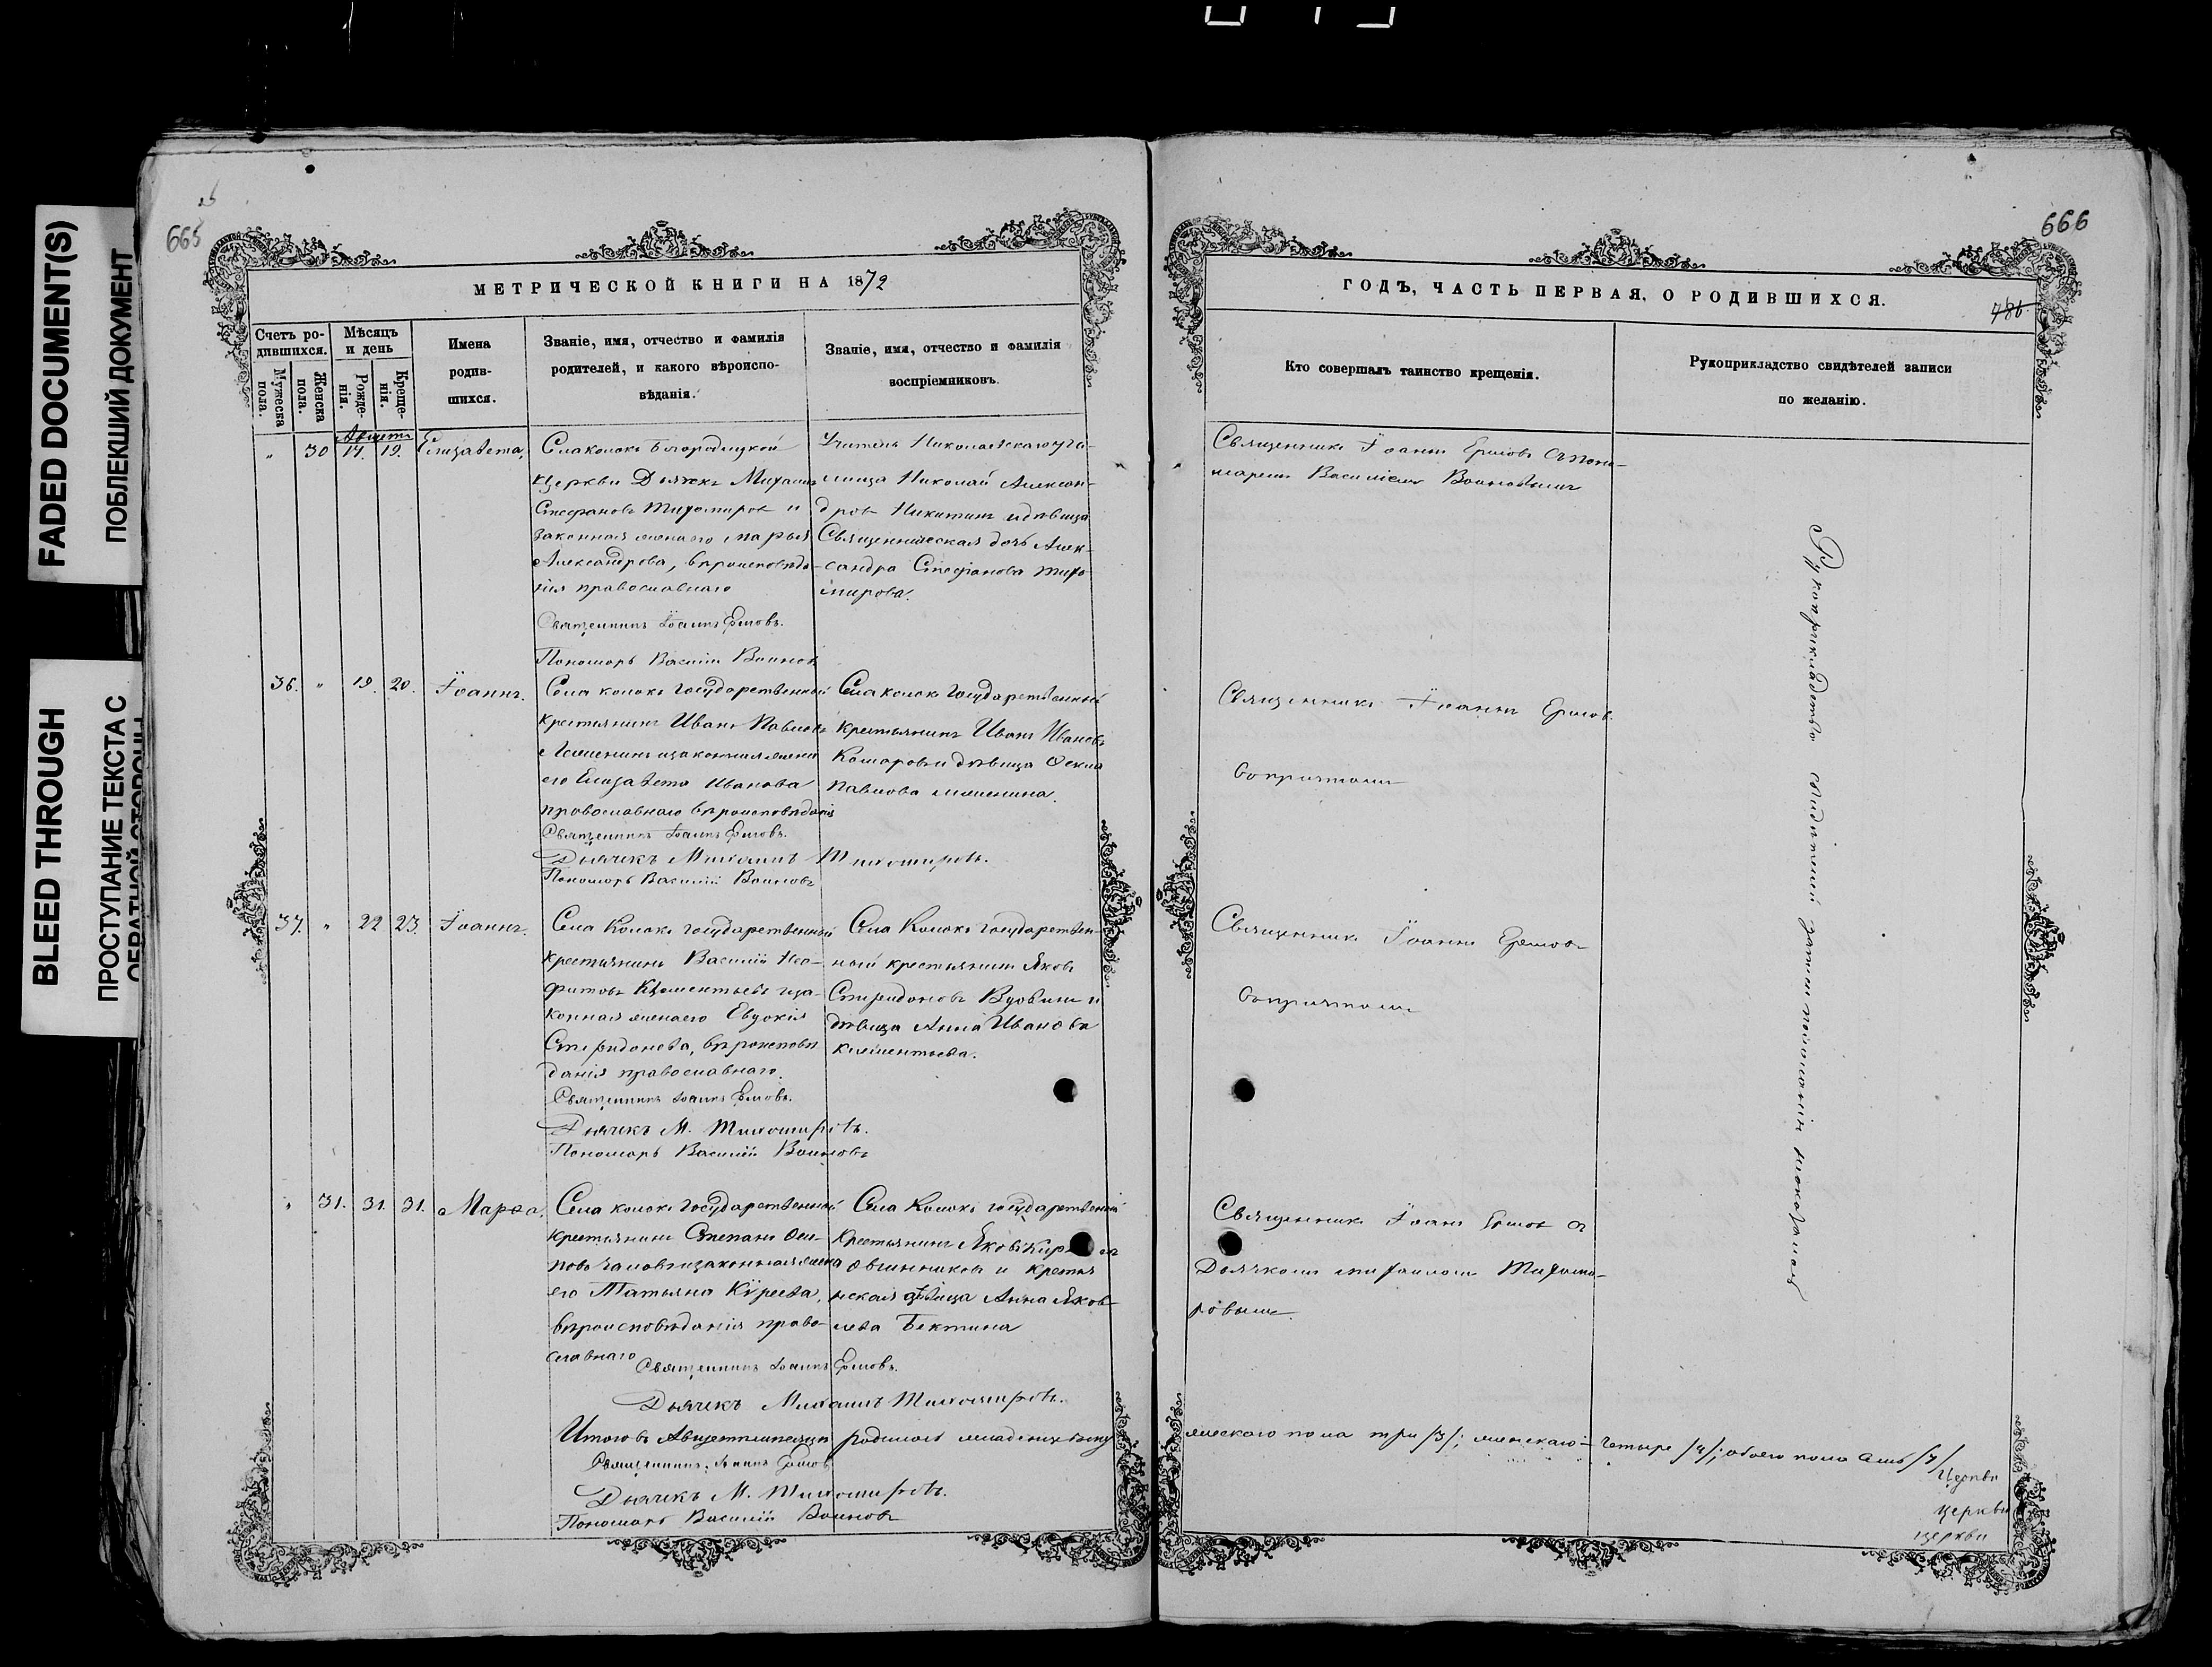 FADED DOCUMENT(S)
ПОБЛЕКШИЙ ДОКУМЕНТ
BLEED THROUGH
ПРОСТУПАНИЕ ТЕКСТА С
ОБРАТНОЙ СТОРОНЫ
665
МЕТРИЧЕСКОЙ КНИГИ НА 1872
Счетъ ро-
дившихся.
Мужеска
пола.
Женска
пола.
Мѣсяцъ
и день
Рожде-
нія.
Креще-
нія.
Имена
родив-
шихся.
Званіе, имя, отчество и фамилія
родителей, и какого вѣроиспо-
вѣданія.
Званіе, имя, отчество и фамилія
воспріемниковъ.
Августъ
" 30 17. 19. Елизавета,
Села Колокъ Богородицкой
церкви Дьячекъ Михаилъ
Стефановъ Тихомировъ и
законная жена его Марья
Александрова, вѣроисповѣда-
нія православнаго
Священникъ Іоаннъ Ершовъ.
Пономарь Василій Воиновъ
Учитель Николаевскаго учи-
лища Николай Алексан-
дровъ Никитинъ и дѣвица
Священническая дочь Алек-
сандра Стефанова Тихо-
мирова.
36. " 19. 20. Іоаннъ.
Села Колокъ государственный
крестьянинъ Иванъ Павловъ
и законная жена
его Елизавета Иванова
православнаго вѣроисповѣданія
Священникъ Іоаннъ Ершовъ.
Дьячекъ Михаилъ Тихомировъ.
Пономарь Василій Воиновъ
Села Колокъ государственный
крестьянинъ Иванъ Ивановъ
Комаровъ и дѣвица
Павлова
37. " 22 23. Іоаннъ.
Села Колокъ государственный
крестьянинъ Василій Нео-
фитовъ Клементьевъ и за-
конная жена его Евдокія
Спиридонова, вѣроисповѣ-
данія православнаго.
Священникъ Іоаннъ Ершовъ.
Дьячекъ М. Тихомировъ.
Пономарь Василій Воиновъ
Села Колокъ государствен-
ный крестьянинъ Яковъ
Спиридоновъ Вдовинъ и
дѣвица Анна Иванова
Клементьева.
" 31. 31. 31. Марѳа.
Села Колокъ государственный
крестьянинъ Степанъ Оси-
повъ и законная жена
его Татьяна Кирѣева,
вѣроисповѣданія право-
славнаго
Священникъ Іоаннъ Ершовъ.
Дьячекъ Михаилъ Тихомировъ.
Села Колокъ государственный
крестьянинъ Яковъ
Овчинниковъ и крестья
нская дѣвица Анна Яков-
лева Бектина
Итого въ Августѣ мѣсяцѣ родилось младенцевъ му
Священникъ Іоаннъ Ершовъ
Дьячекъ М. Тихомировъ.
Пономарь Василій Воиновъ
666
786.
ГОДЪ, ЧАСТЬ ПЕРВАЯ, О РОДИВШИХСЯ.
Кто совершалъ таинство крещенія.
Рукоприкладство свидѣтелей записи
по желанію.
Священникъ Іоаннъ Ершовъ съ поно-
маремъ Василіемъ Воиновымъ
Священникъ Іоаннъ Ершовъ.
Съ причтомъ
Священникъ Іоаннъ Ершовъ
Съ причтомъ
Священникъ Іоаннъ Ершовъ съ
Дьячкомъ Михаиломъ Тихоми-
ровымъ
Рукоприкладства свидѣтелей записи по желанію
жескаго пола три /3/; женскаго – четыре /4/; обоего пола семь /7/
Церкви
Церкви
церкви